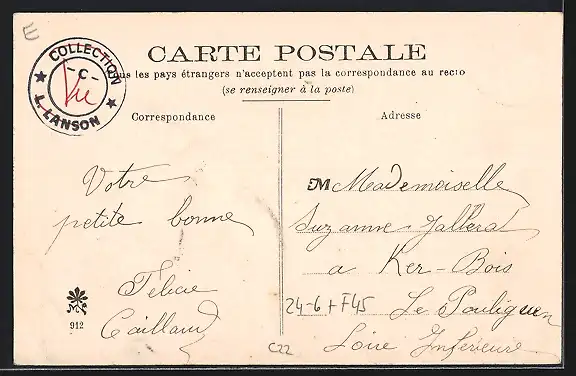 E
COLLECTION
-C-
Vu
L. LANSON
CARTE POSTALE
Tous les pays étrangers n'acceptent pas la correspondance au recto
(se renseigner à la poste)
Correspondance
Votre
petite bonne
Félicie
Caillaud
M
912
Adresse
M Mademoiselle
Suzanne
a Ker-Bois
24-6 + F45
Le Pouliguen
Loire Inferieure
C22